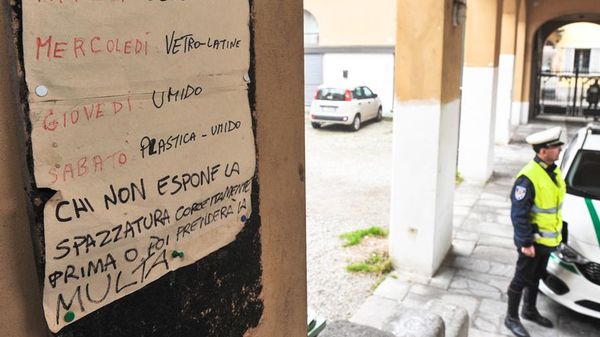 MERCOLEDÌ VETRO-LATINE
GIOVEDÌ UMIDO
SABATO PLASTICA-UMIDO
CHI NON ESPONE LA
SPAZZATURA CORRETTAMENTE
PRIMA O POI PRENDERÀ LA
MULTA